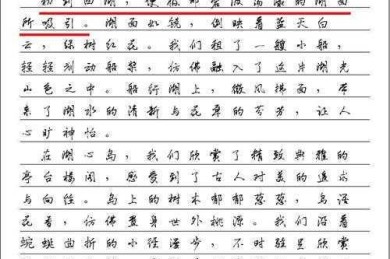 初到西湖，便被那碧波荡漾的湖面
所吸引。湖面如镜，倒映着蓝天白
云，绿树红花。我们租了一艘小船，
轻轻划动船桨，仿佛融入了这片湖光
山色之中。船行湖上，微风拂面，带
来了湖水的清新与花草的芬芳，让人
心旷神怡。
在湖心岛，我们欣赏了精致典雅的
亭台楼阁，感受到了古人对美的追求
与向往。岛上的树木郁郁葱葱，鸟语
花香，仿佛置身世外桃源。我们沿着
蜿蜒曲折的小径漫步，不时驻足欣赏